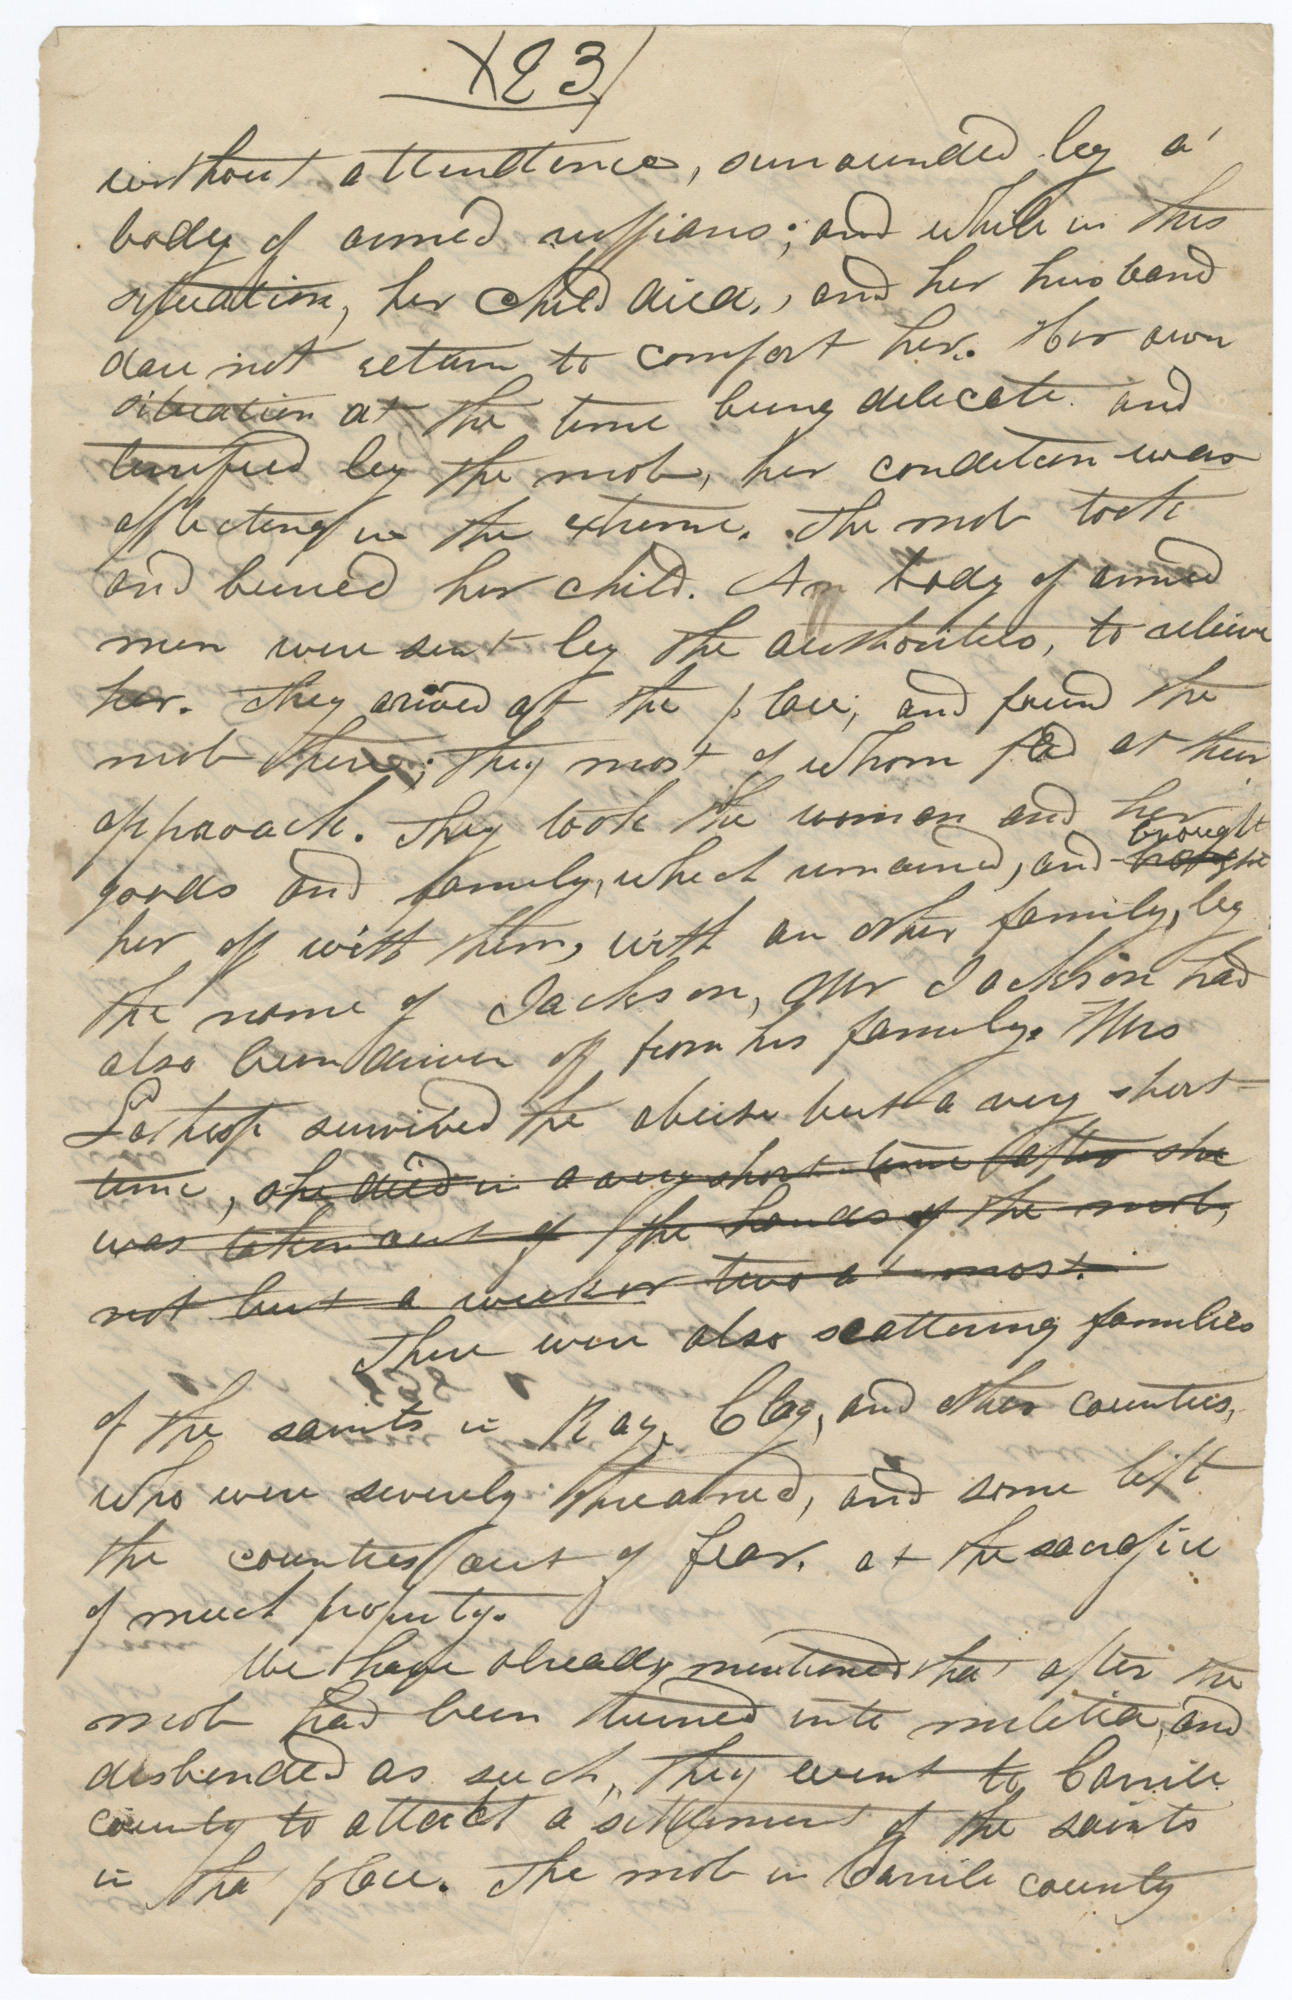 X23
without attendence, surrounded by a
body of armed ruffians; and while in this
situation, her child died, and her husband
dare not return to comfort her. Her own
situation at the time being delicate and
terrified by the mob, her condition was
affecting in the extreme. The mob took
and buried her child. A body of armed
men were sent by the authorities, to relieve
her. They arived at the place, and found the
mob there; they most of whom fled at their
approach. They took the woman and her
goods and family, which remained, and brought
her off with them, with an other family, by
the name of Jackson, Mr Jackson had
also been driven off from his family. Mrs
Lathrop survived the abuse but a very short
time, she died in a very short time after she
was taken out of the hands of the mob,
not but a week or two at most.
There were also scattering families
of the saints in Ray, Clay, and other counties,
who were severely threatned, and some left
the counties out of fear, at the sacrifice
of much property.
We have already mentioned that after the
mob had been turned into militia, and
desbended as such, they went to Carrile
county to attact a settlement of the saints
in that place. The mob in Carrile county